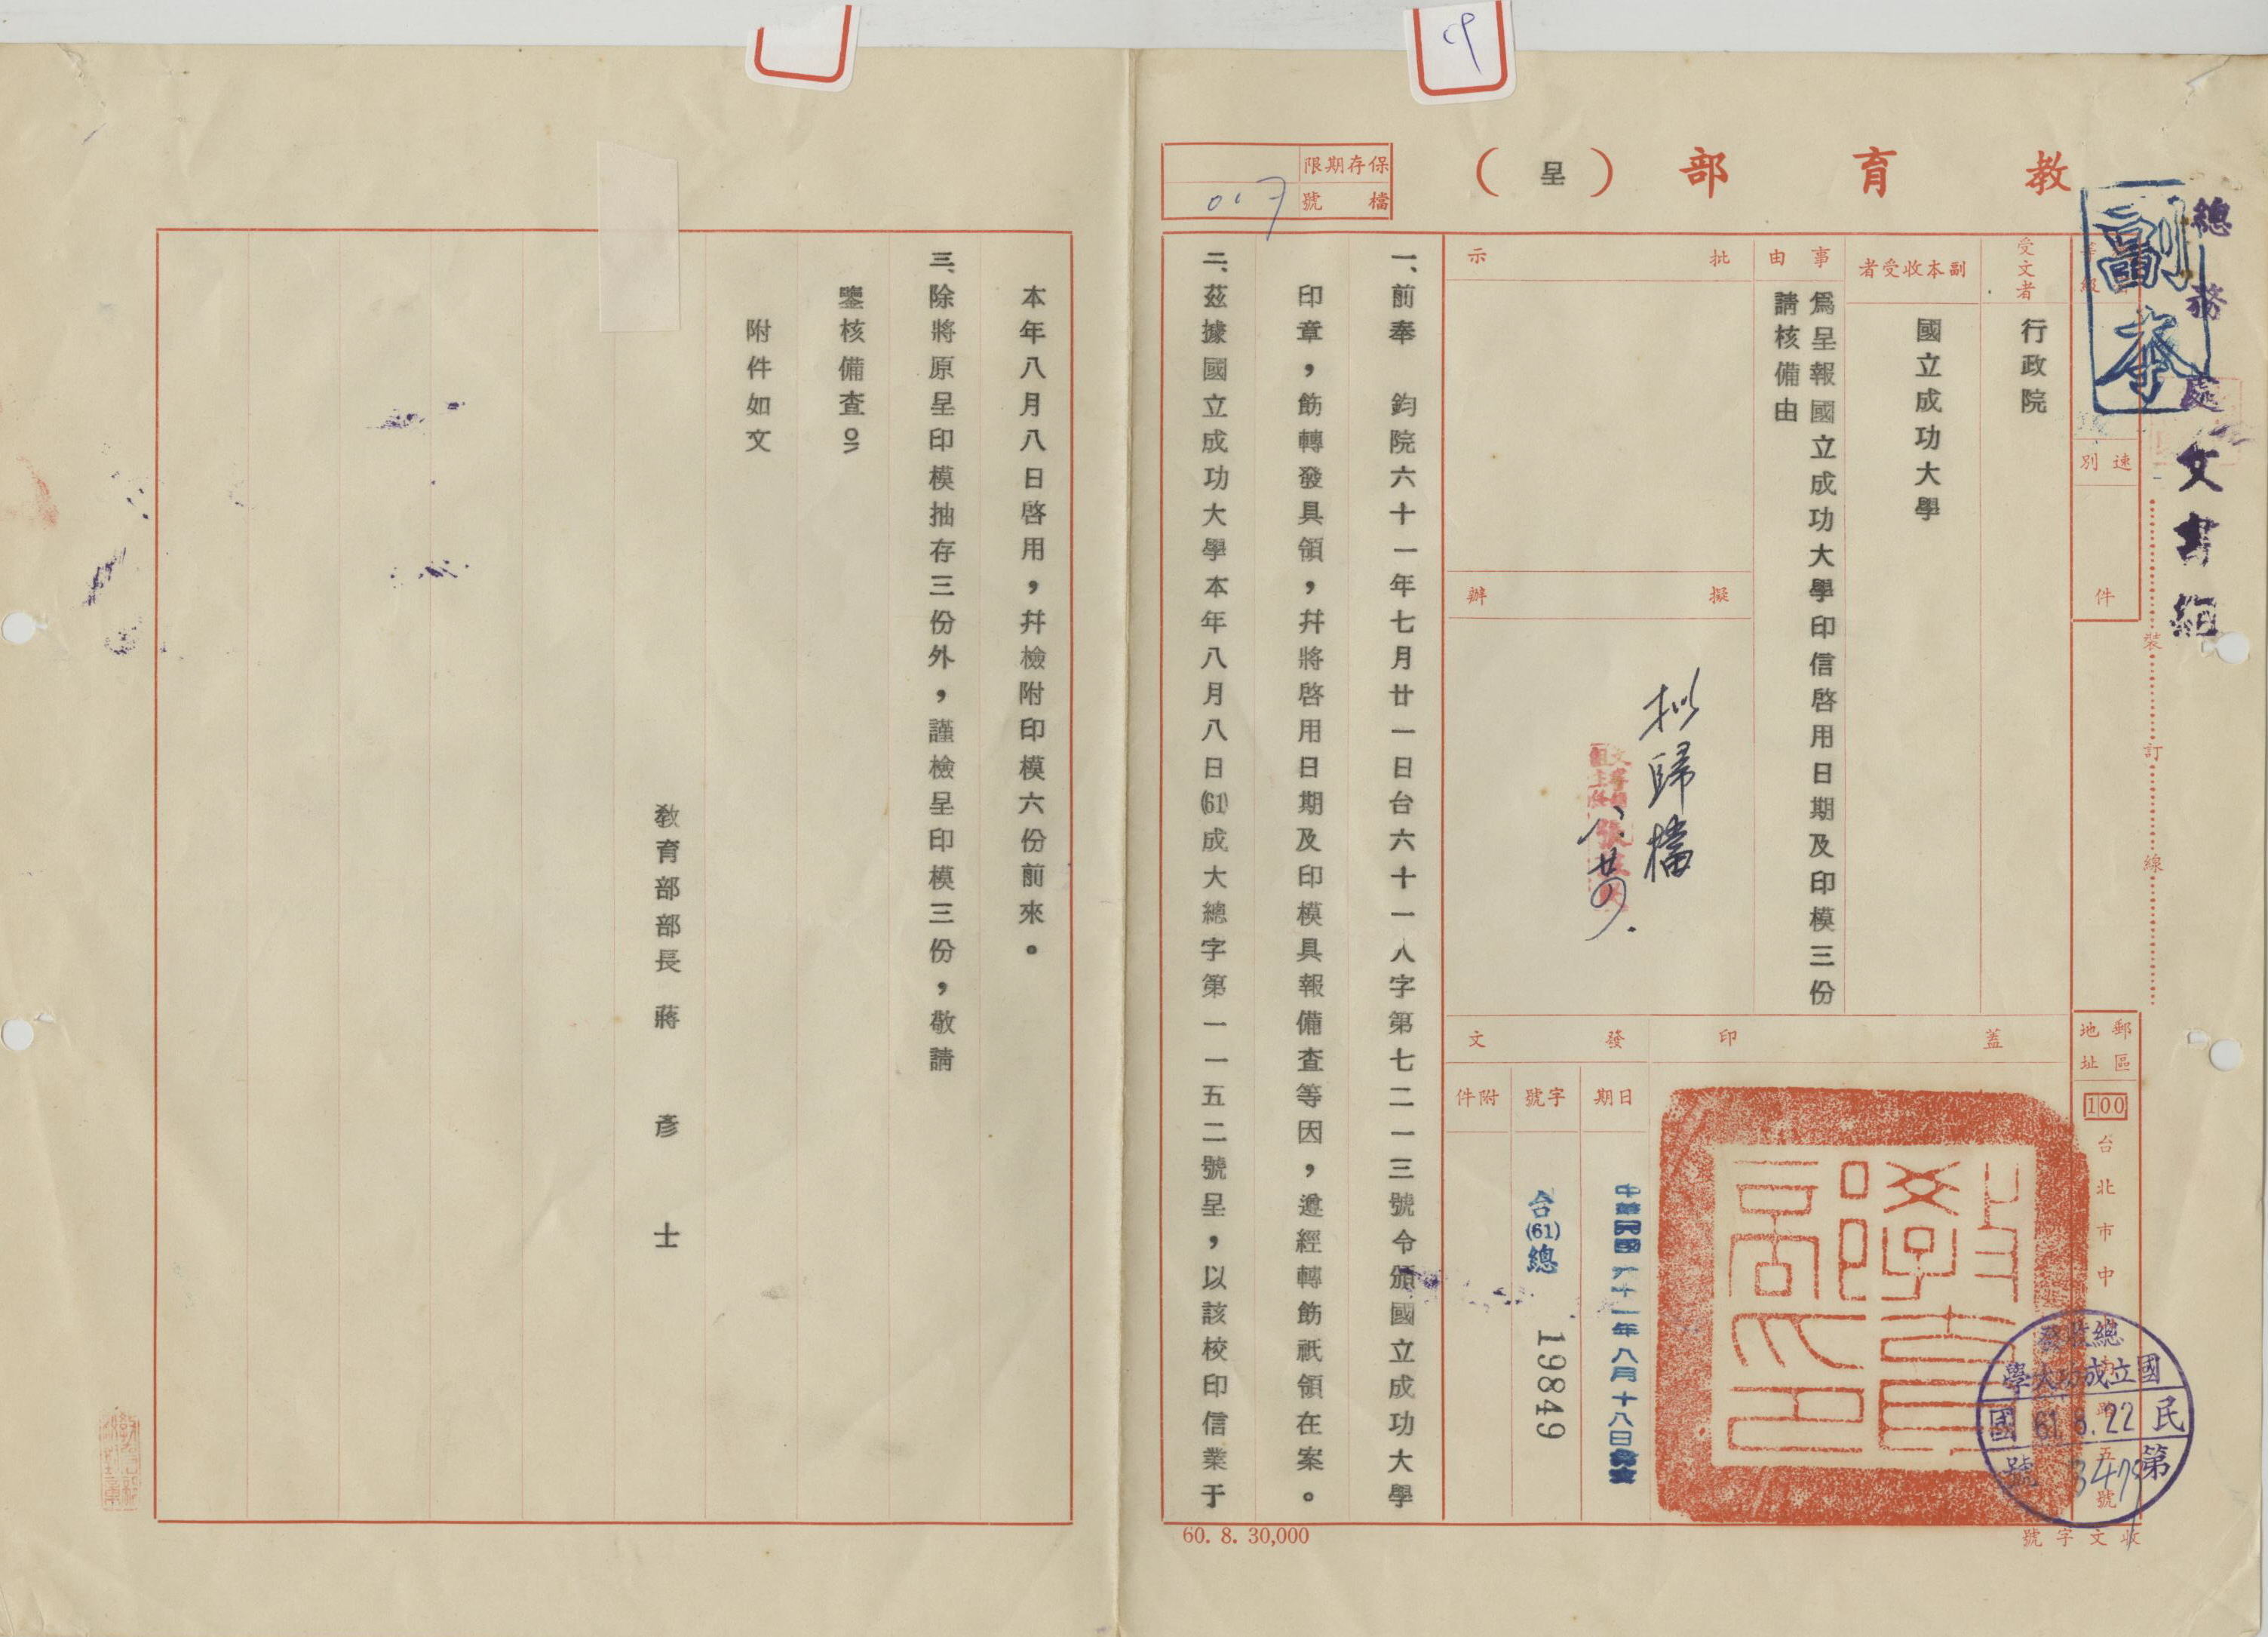 教育部（呈）
保存期限
檔號
017
副本
總務處文書組
受文者
行政院
副本收受者
國立成功大學
事由
為呈報國立成功大學印信啓用日期及印模三份
請核備由
批示
擬辦
拟歸檔
速別
件
裝訂線
郵區
地址
100
台北市中
蓋印
發文
日期
中華民國六十一年八月十八日
字號
台(61)總 19849
附件
總收發
國立成功大學
民國 61.8.22
第 號
收文字號
一、前奉 鈞院六十一年七月廿一日台六十一人字第七二一三號令頒國立成功大學
印章，飭轉發具領，幷將啓用日期及印模具報備查等因，遵經轉飭祇領在案。
二、茲據國立成功大學本年八月八日(61)成大總字第一一五二號呈，以該校印信業于
60. 8. 30,000
本年八月八日啓用，幷檢附印模六份前來。
三、除將原呈印模抽存三份外，謹檢呈印模三份，敬請
鑒核備查。
附件如文
教育部部長 蔣彥士